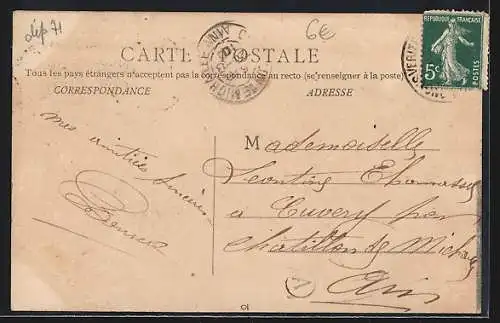 dép 71
6€
CARTE POSTALE
Tous les pays étrangers n'acceptent pas la correspondance au recto (se renseigner à la poste)
CORRESPONDANCE
ADRESSE
RÉPUBLIQUE FRANÇAISE
5c
POSTES
mes amitiés sincères
Mademoiselle
Léontine
à Cuvery par
Chatillon de Michaille
Ain